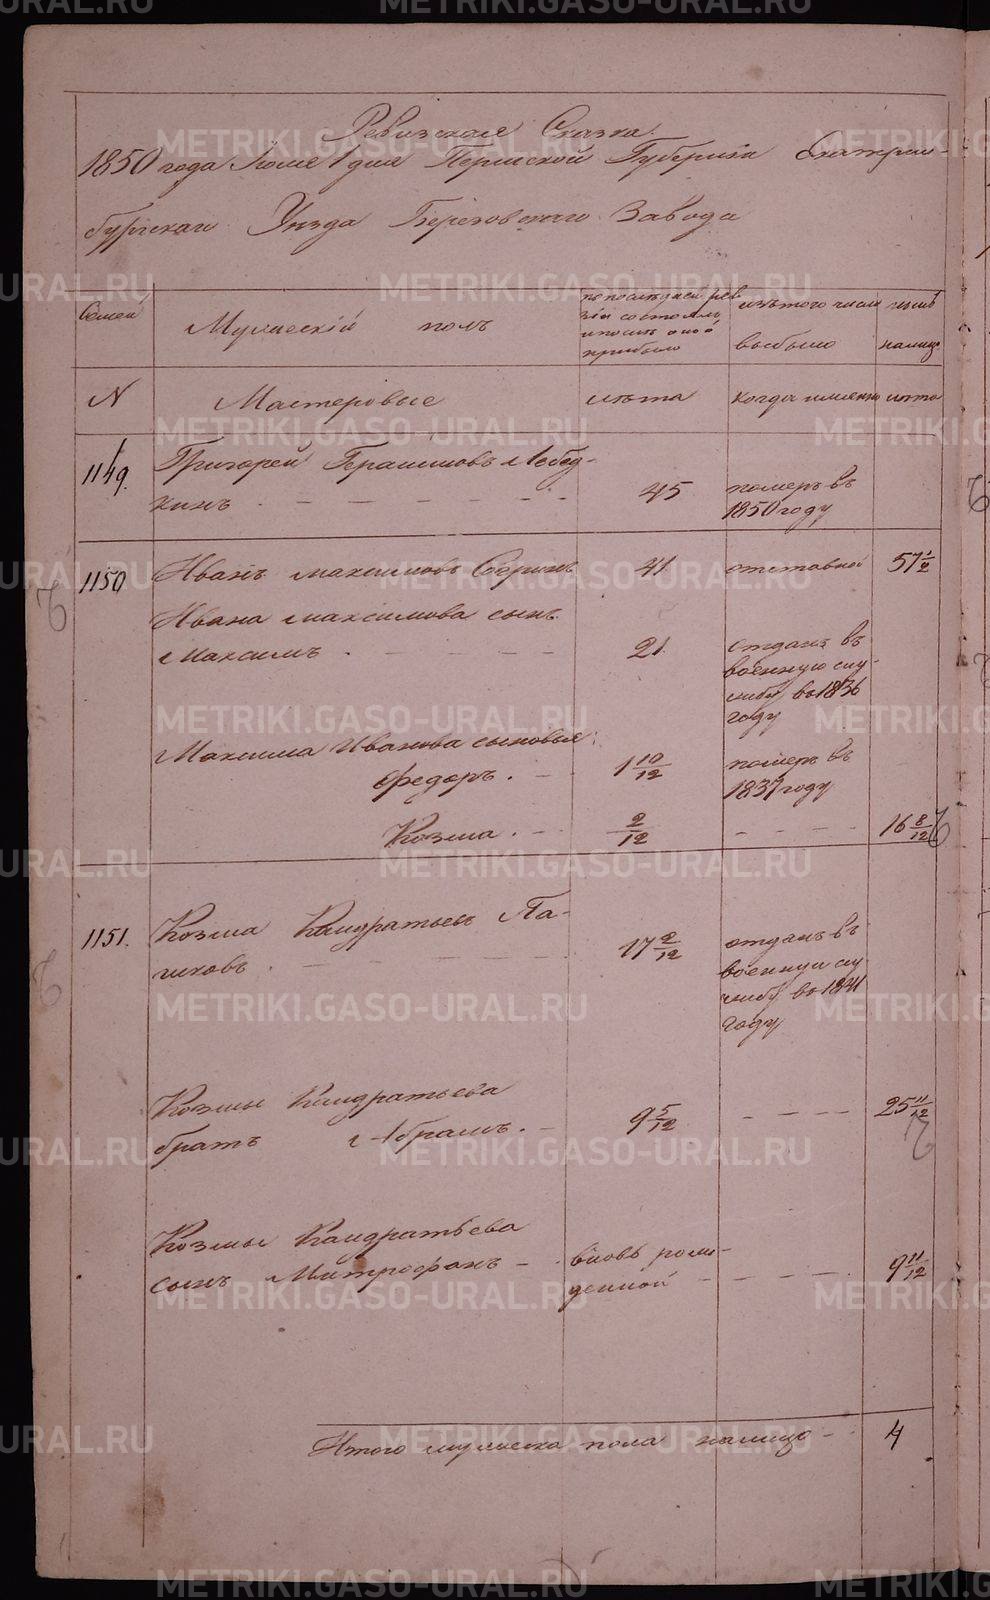 Ревизская Сказка.
1850 года Июня 1 дня Пермской Губернии Екатерин-
бургскаго Уезда Березовскаго Завода
Семей
Мужеский полъ
по последней рев
зіи состояло
и после оной
прибыло
изъ того числа
выбыло
ныне
налицо
N
Мастеровые
лета
когда именно
лета
1149.
Григорей Герасимовъ Лебед-
кинъ
45
померъ въ
1850 году
1150
Иванъ Максимовъ
41
отставной
57 1/2
Ивана Максимова сынъ
Максимъ
21
отданъ въ
военную слу-
жбу въ 1836
году
Максима Иванова сыновья
Федоръ.
1 10/12
померъ въ
1837 году
Козма.
2/12
16 8/12
1151.
Козма Кандратьевъ Па-
17 2/12
отданъ въ
военную слу-
жбу въ 1841
году
Козмы Кандратьева
братъ Абрамъ.
9 5/12
25 11/12
Козмы Кандратьева
сынъ Митрофанъ
вновь рож-
денной
9 11/12
Итого мужеска пола налицо
4
METRIKI.GASO-URAL.RU